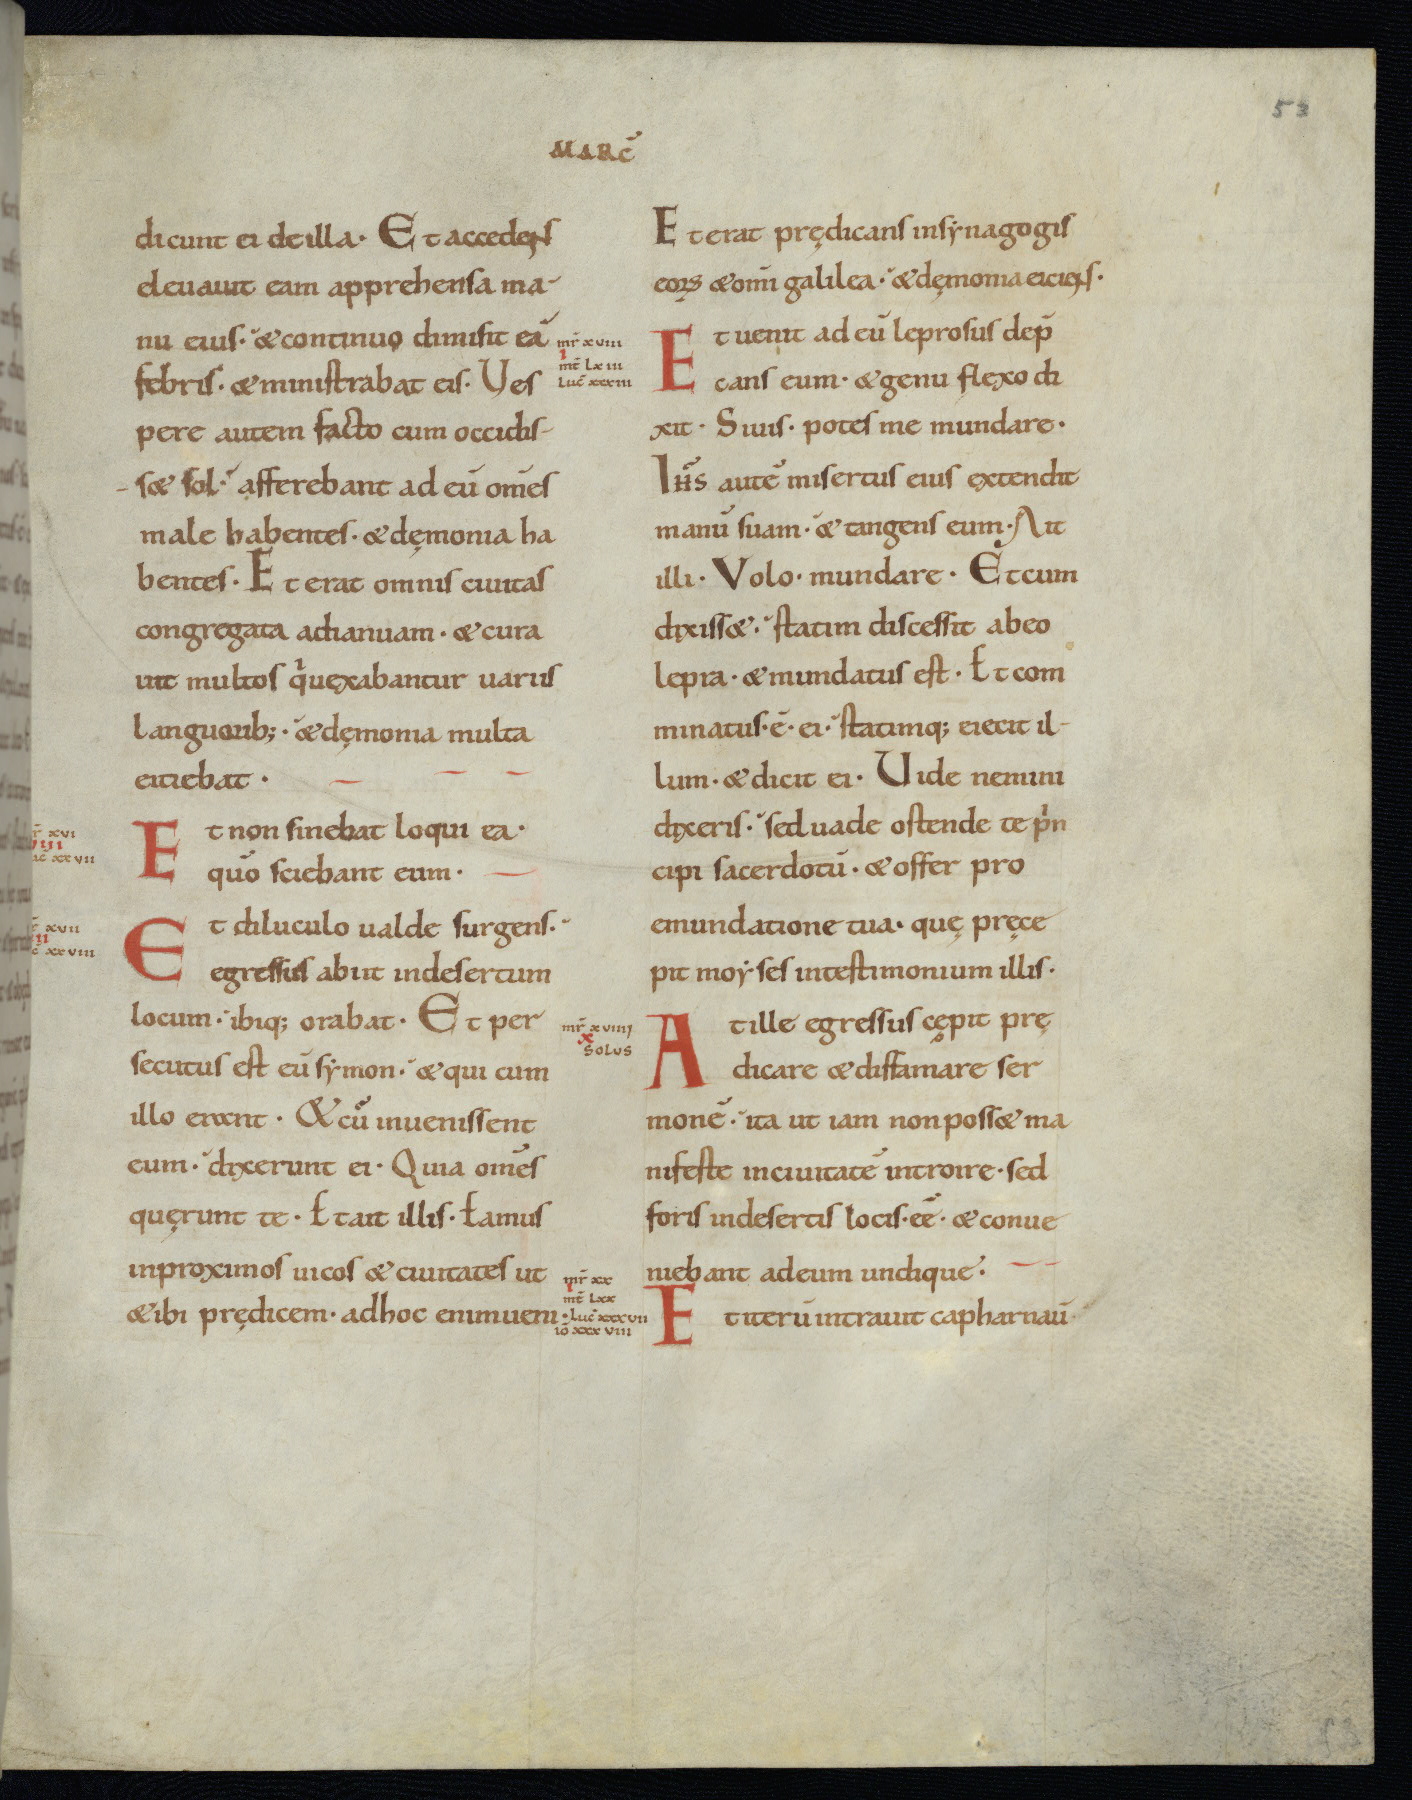 53
MARC̄
dicunt ei de illa. Et accedens
eleuauit eam apprehensa ma-
nu eius. & continuo dimisit eā
febris. & ministrabat eis. Ves
pere autem facto cum occidis-
-s& sol. afferebant ad eū om̄es
male habentes. & dęmonia ha
bentes. Et erat omnis ciuitas
congregata adianuam. & cura
uit multos q̇ uexabantur uariis
languorib;. & dęmonia multa
eiciebat.
mr̄ xvi
viii
luc̄ xxvii
Et non sinebat loqui ea.
quō sciebant eum.
mr̄ xvii
xxviii
Et diluculo ualde surgens.
egressus abiit indesertum
locum. ibiq; orabat. Et per
secutus est eū sẏmon. & qui cum
illo erant. & cū inuenissent
eum. dixerunt ei. Quia om̄es
quęrunt te. Et ait illis. Eamus
inproximos uicos & ciuitates ut
& ibi prędicem. adhoc enim ueni.
mr̄ xviii
i
mt̄ lxiii
luc̄ xxxiii
mr̄ xviiii
x
solus
mr̄ xx
i
mt̄ lxx
luc̄ xxxvii
io xxxviii
Et erat prędicans insẏnagogis
eoꝝ & om̄i galilea. & dęmonia eiciens.
Et uenit ad eū leprosus dep̄
cans eum. & genu flexo di
xit. Si uis. potes me mundare.
Ih̄s autē misertus eius extendit
manū suam. & tangens eum. Ait
illi. Volo. mundare. Et cum
dixiss&. statim discessit abeo
lepra. & mundatus est. Et com
minatus. ē. ei. statimq; eiecit il-
lum. & dicit ei. Uide nemini
dixeris. sed uade ostende te prin
cipi sacerdotū. & offer pro
emundatione tua. quę pręce
pit moẏses intestimonium illis.
At ille egressus cępit prę
dicare & diffamare ser
monē. ita ut iam non poss& ma
nifeste inciuitatē introire. sed
foris indesertis locis. eē. & conue
niebant adeum undique.
Et iterū intrauit capharnaū
53